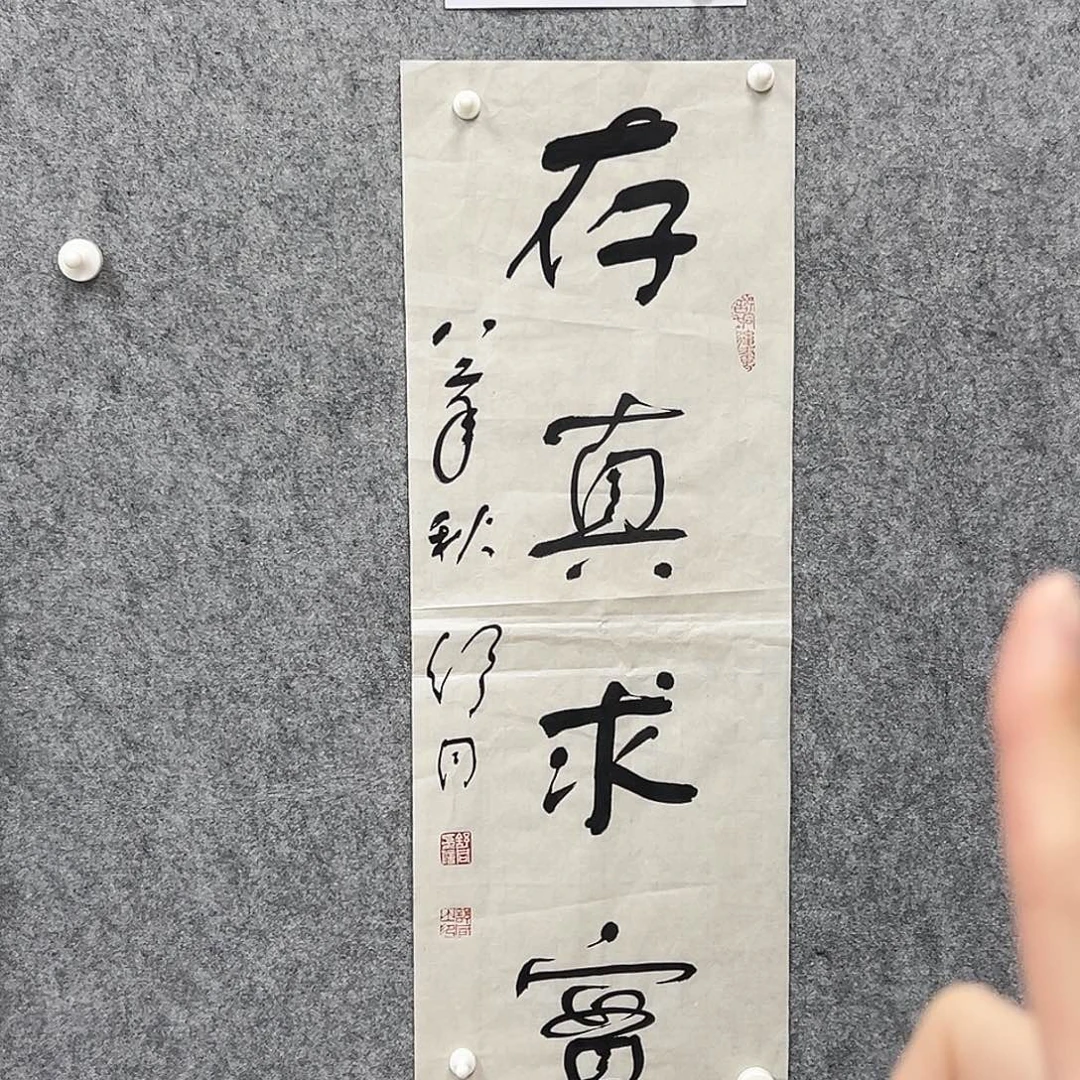 存真求實
八二年秋
舒同